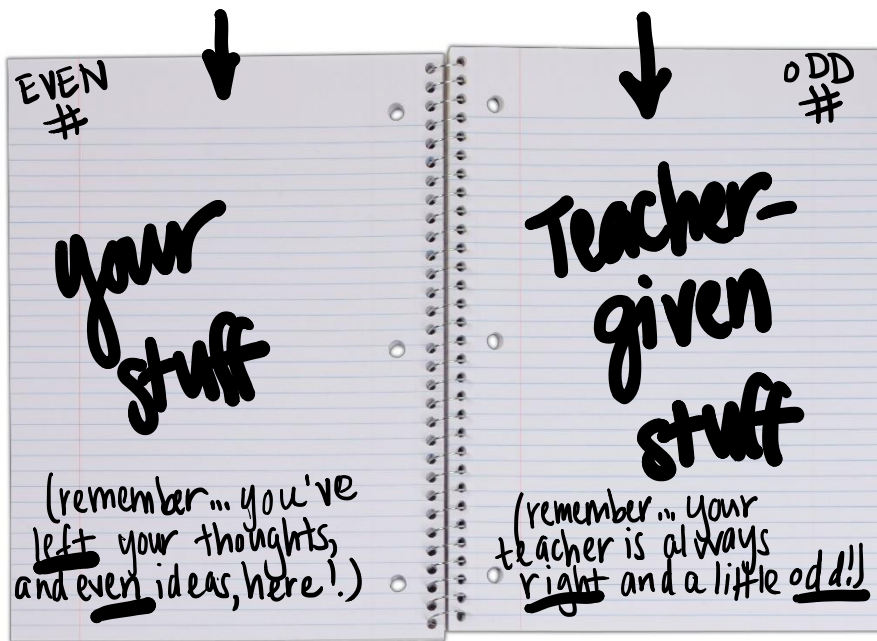 EVEN
#
your
stuff
(remember... you've
left your thoughts,
and even ideas, here!)
ODD
#
Teacher-
given
stuff
(remember... your
teacher is always
right and a little odd!)